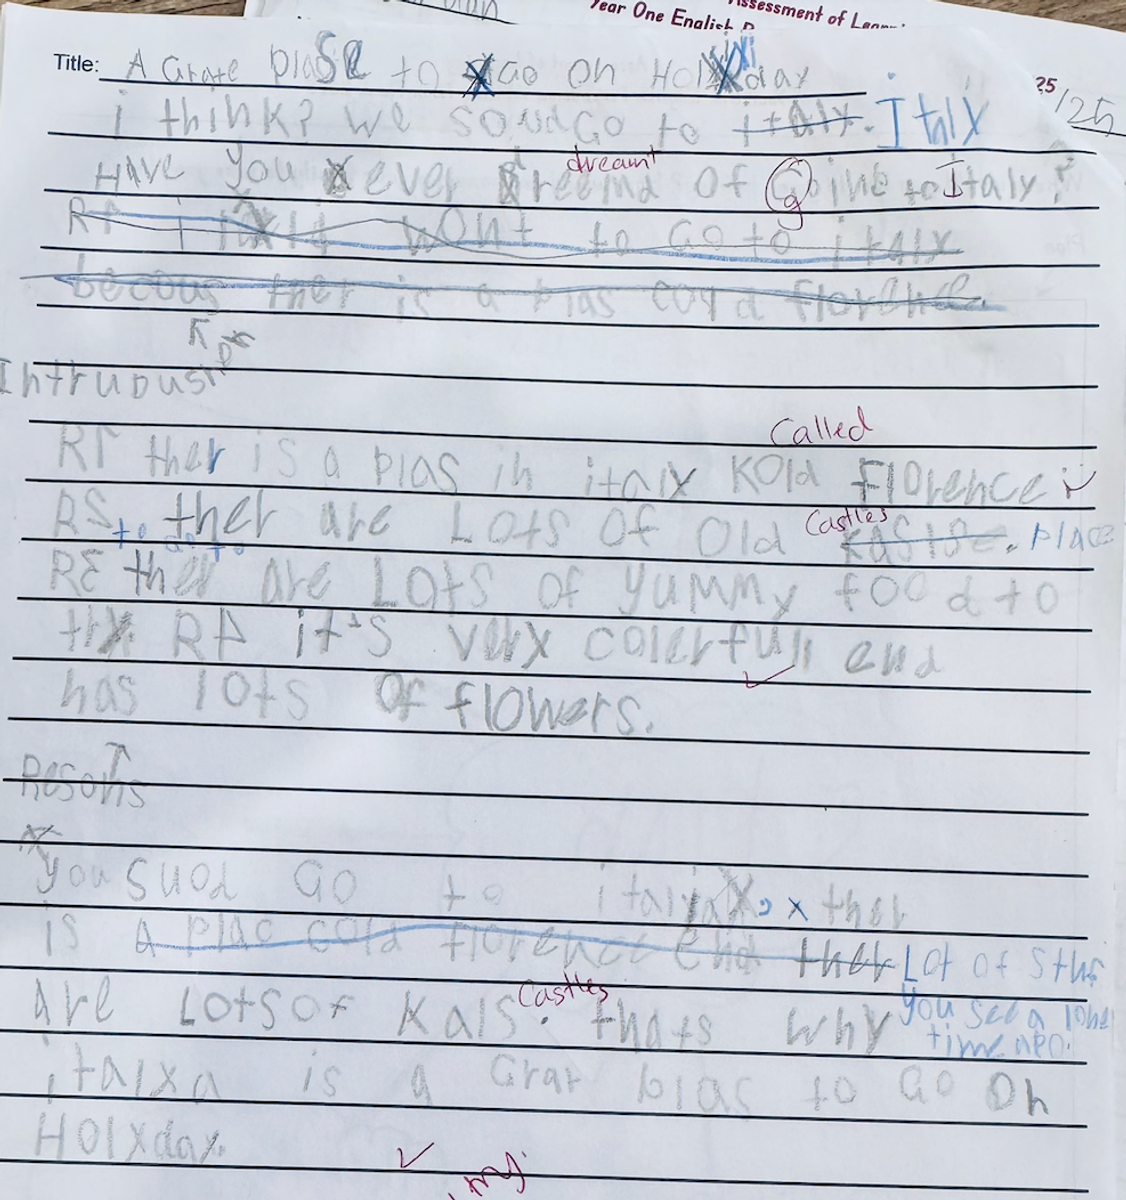 Assessment of Lear
Year One English
Title: A Grate plase to Go on Holiday
25
/25
i think? we soud Go to italy. Italy
dreamt
Have you ever dreemd of Going to Italy?
g
RT i wont to Go to italy
becous ther is a plas cord florence.
Intrudus
Called
RT ther is a plas in italy Kold Florence
Castles
RS ther are Lots of old kastse. place
to go to
RE ther are Lots of yummy food to
try RA it's very colerfull end
has lots of flowers.
Resons
you suod Go to italy, ther
is a plac cold florence end ther Lot of
Castles
are Lots of Kals. thats why you see a long
time ago.
italya is a Grat plas to Go on
Holyday.